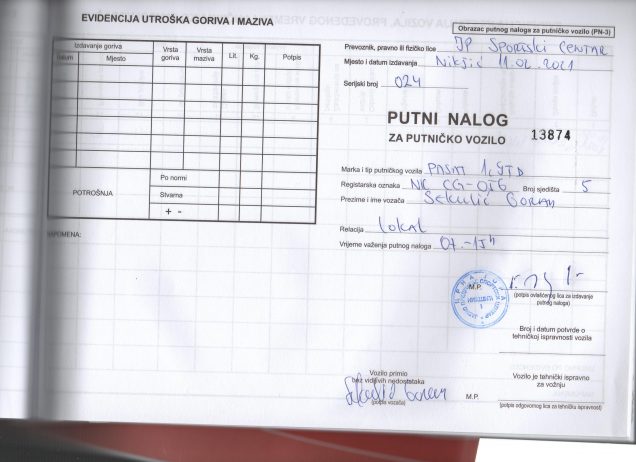 EVIDENCIJA UTROŠKA GORIVA I MAZIVA
Izdavanje goriva
Datum
Mjesto
Vrsta goriva
Vrsta maziva
Lit.
Kg.
Potpis
POTROŠNJA
Po normi
Stvarna
+ -
NAPOMENA:
Obrazac putnog naloga za putničko vozilo (PN-3)
Prevoznik, pravno ili fizičko lice JP Sportski CENTAR
Mjesto i datum izdavanja Nikšić 11.02.2021
Serijski broj 024
PUTNI NALOG
ZA PUTNIČKO VOZILO 13874
Marka i tip putničkog vozila PASAT 1,9TD
Registarska oznaka NK CG-076 Broj sjedišta 5
Prezime i ime vozača Sekulić Goran
Relacija Lokal
Vrijeme važenja putnog naloga 07.-15h
M.P.
(potpis ovlašćenog lica za izdavanje
putnog naloga)
Broj i datum potvrde o
tehničkoj ispravnosti vozila
Vozilo primio
bez vidljivih nedostataka
(potpis vozača)
M.P.
Vozilo je tehnički ispravno
za vožnju
(potpis odgovornog lica za tehničku ispravnost)